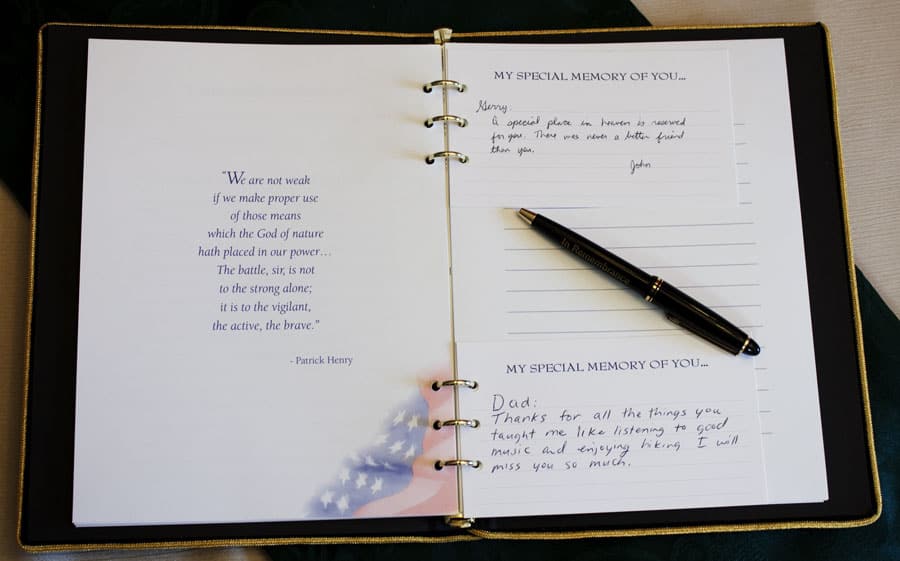 "We are not weak
if we make proper use
of those means
which the God of nature
hath placed in our power...
The battle, sir, is not
to the strong alone;
it is to the vigilant,
the active, the brave."
- Patrick Henry
MY SPECIAL MEMORY OF YOU...
Gerry:
A special place in heaven is reserved
for you. There was never a better friend
than you.
John
In Remembrance
MY SPECIAL MEMORY OF YOU...
Dad:
Thanks for all the things you
taught me like listening to good
music and enjoying hiking I will
miss you so much.